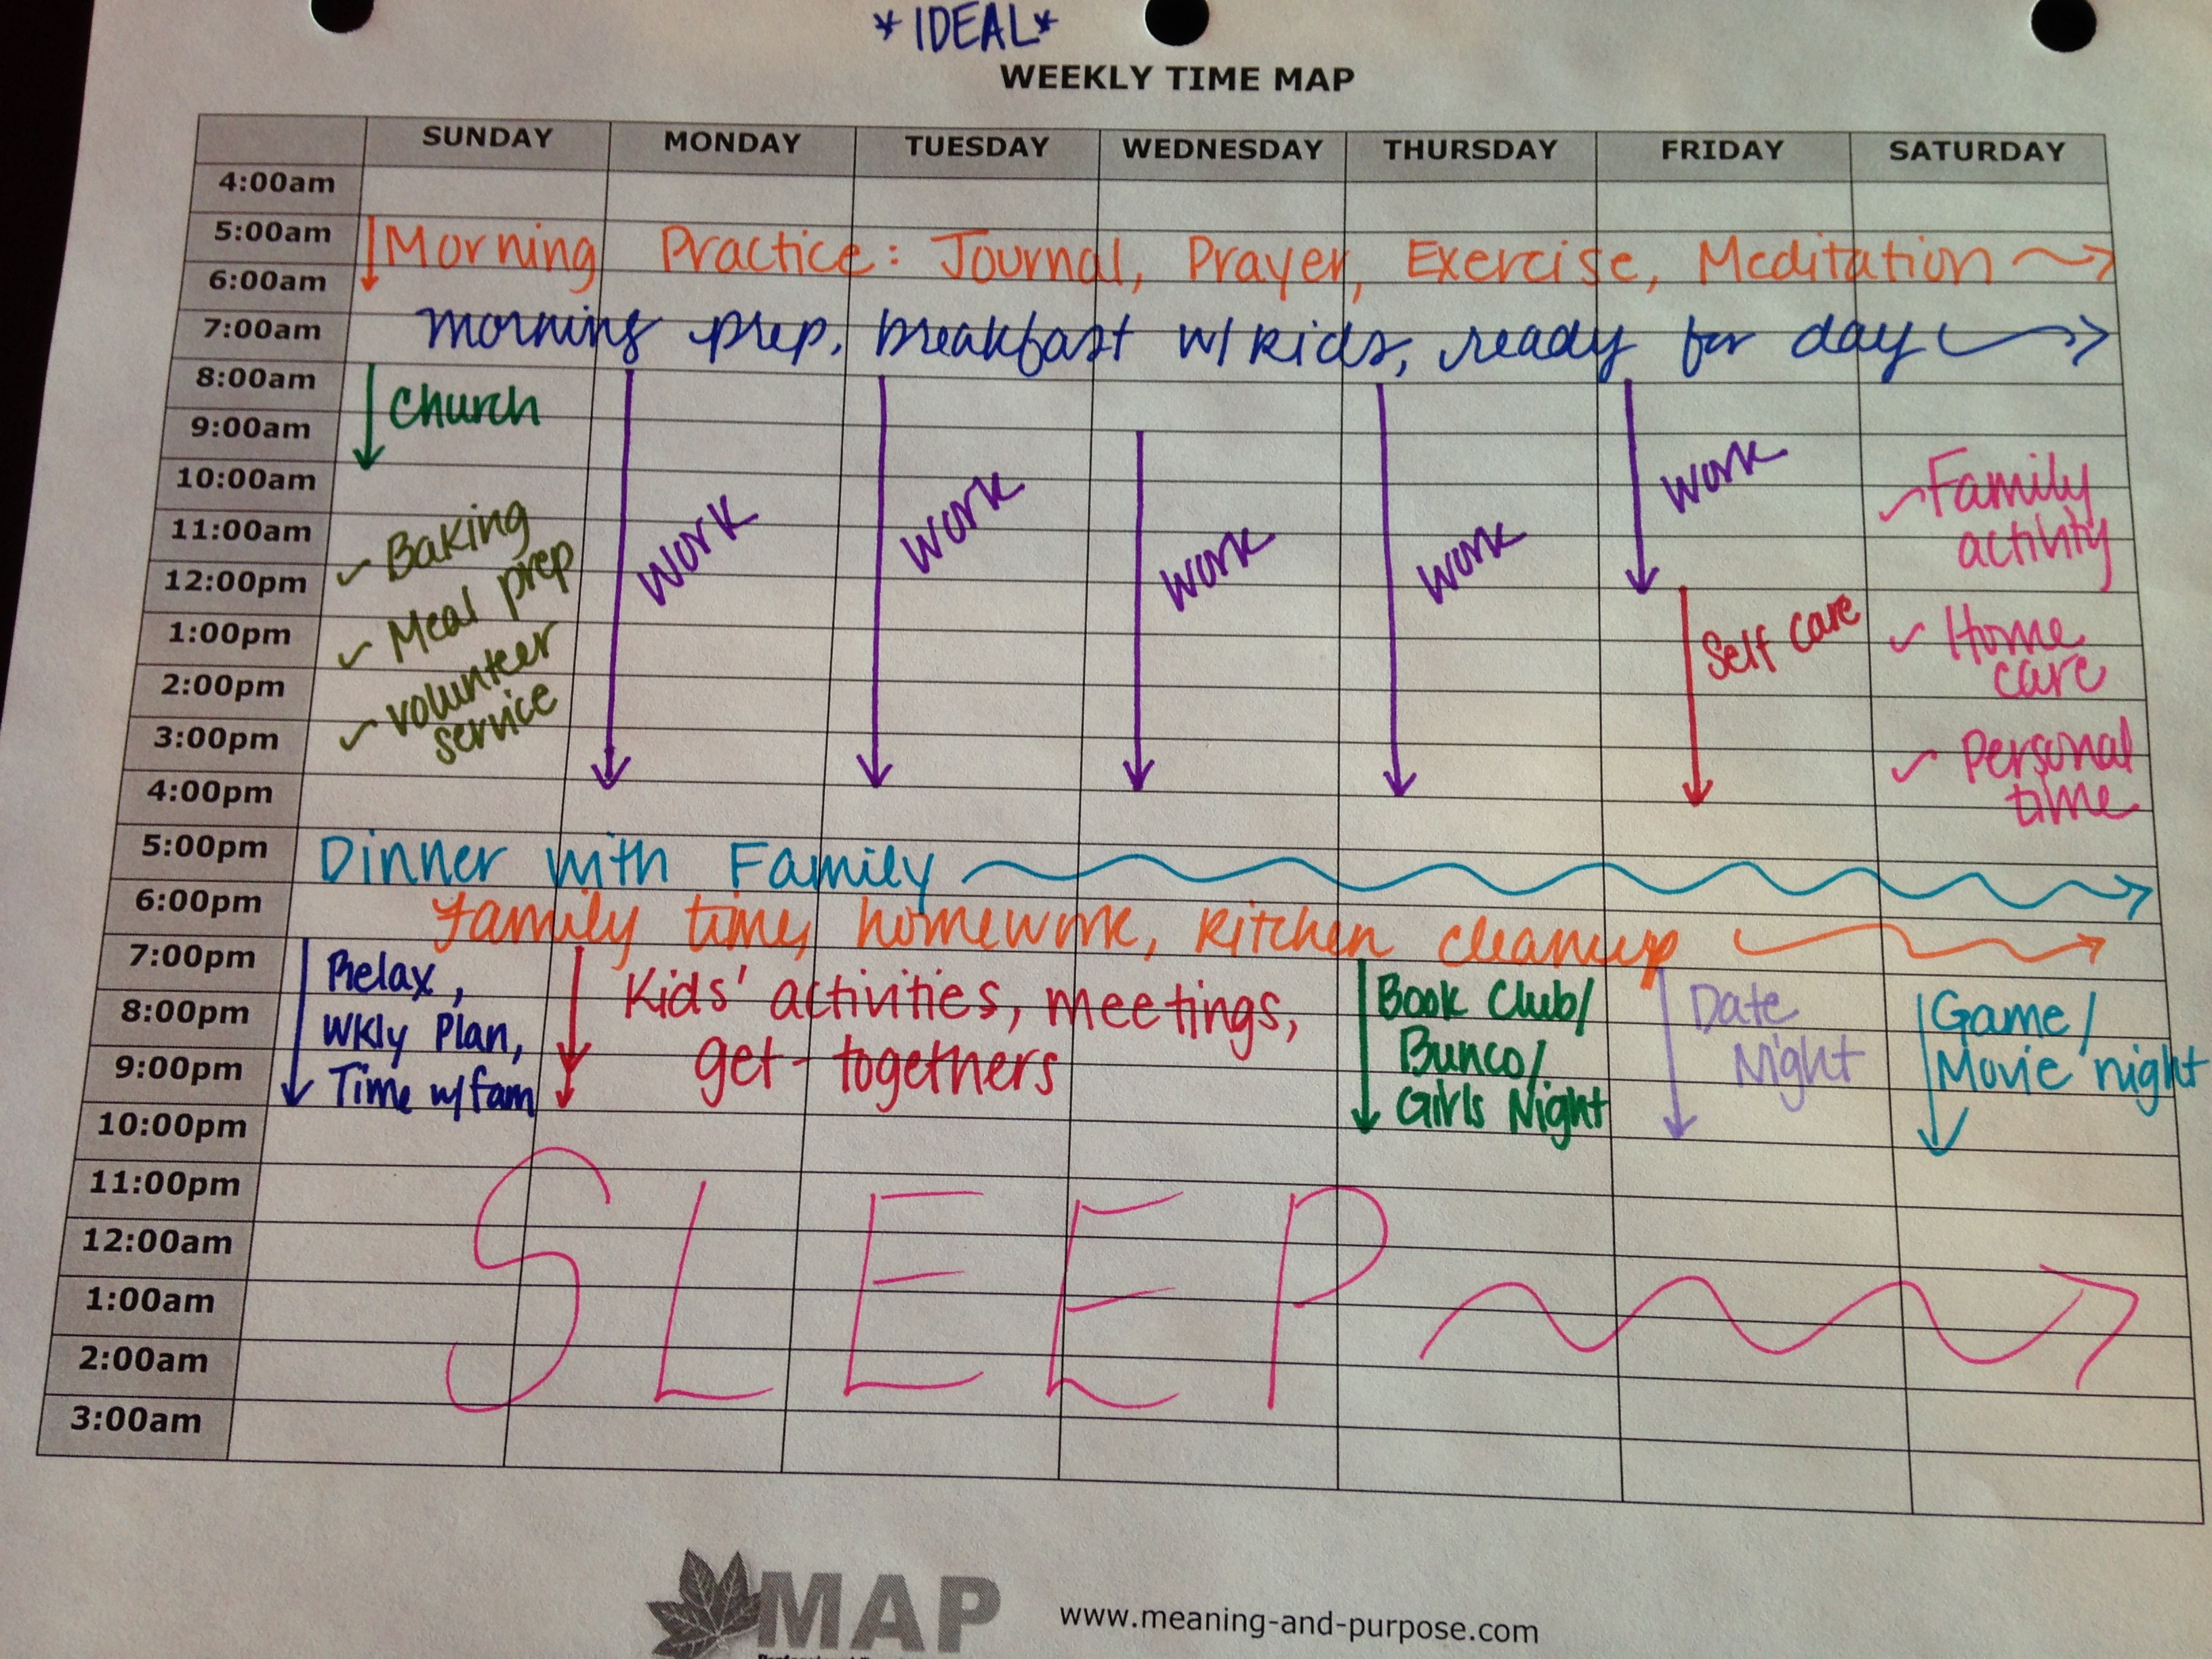 *IDEAL*
WEEKLY TIME MAP
SUNDAY MONDAY TUESDAY WEDNESDAY THURSDAY FRIDAY SATURDAY
4:00am
5:00am
Morning Practice: Journal, Prayer, Exercise, Meditation
6:00am
7:00am
morning prep, breakfast w/ kids, ready for day
8:00am
Church
9:00am
10:00am
11:00am
12:00pm
1:00pm
2:00pm
3:00pm
4:00pm
✓ Baking
✓ Meal prep
✓ volunteer
service
work
work
work
work
work
Self care
✓ Family
activity
✓ Home
care
✓ Personal
time
5:00pm
Dinner with Family
6:00pm
Family time, homework, kitchen cleanup
7:00pm
8:00pm
9:00pm
Relax,
Wkly Plan,
Time w/ fam
Kids' activities, meetings,
get-togethers
Book Club/
Bunco/
Girls Night
Date
Night
Game/
Movie night
10:00pm
11:00pm
12:00am
1:00am
2:00am
3:00am
SLEEP
MAP
www.meaning-and-purpose.com